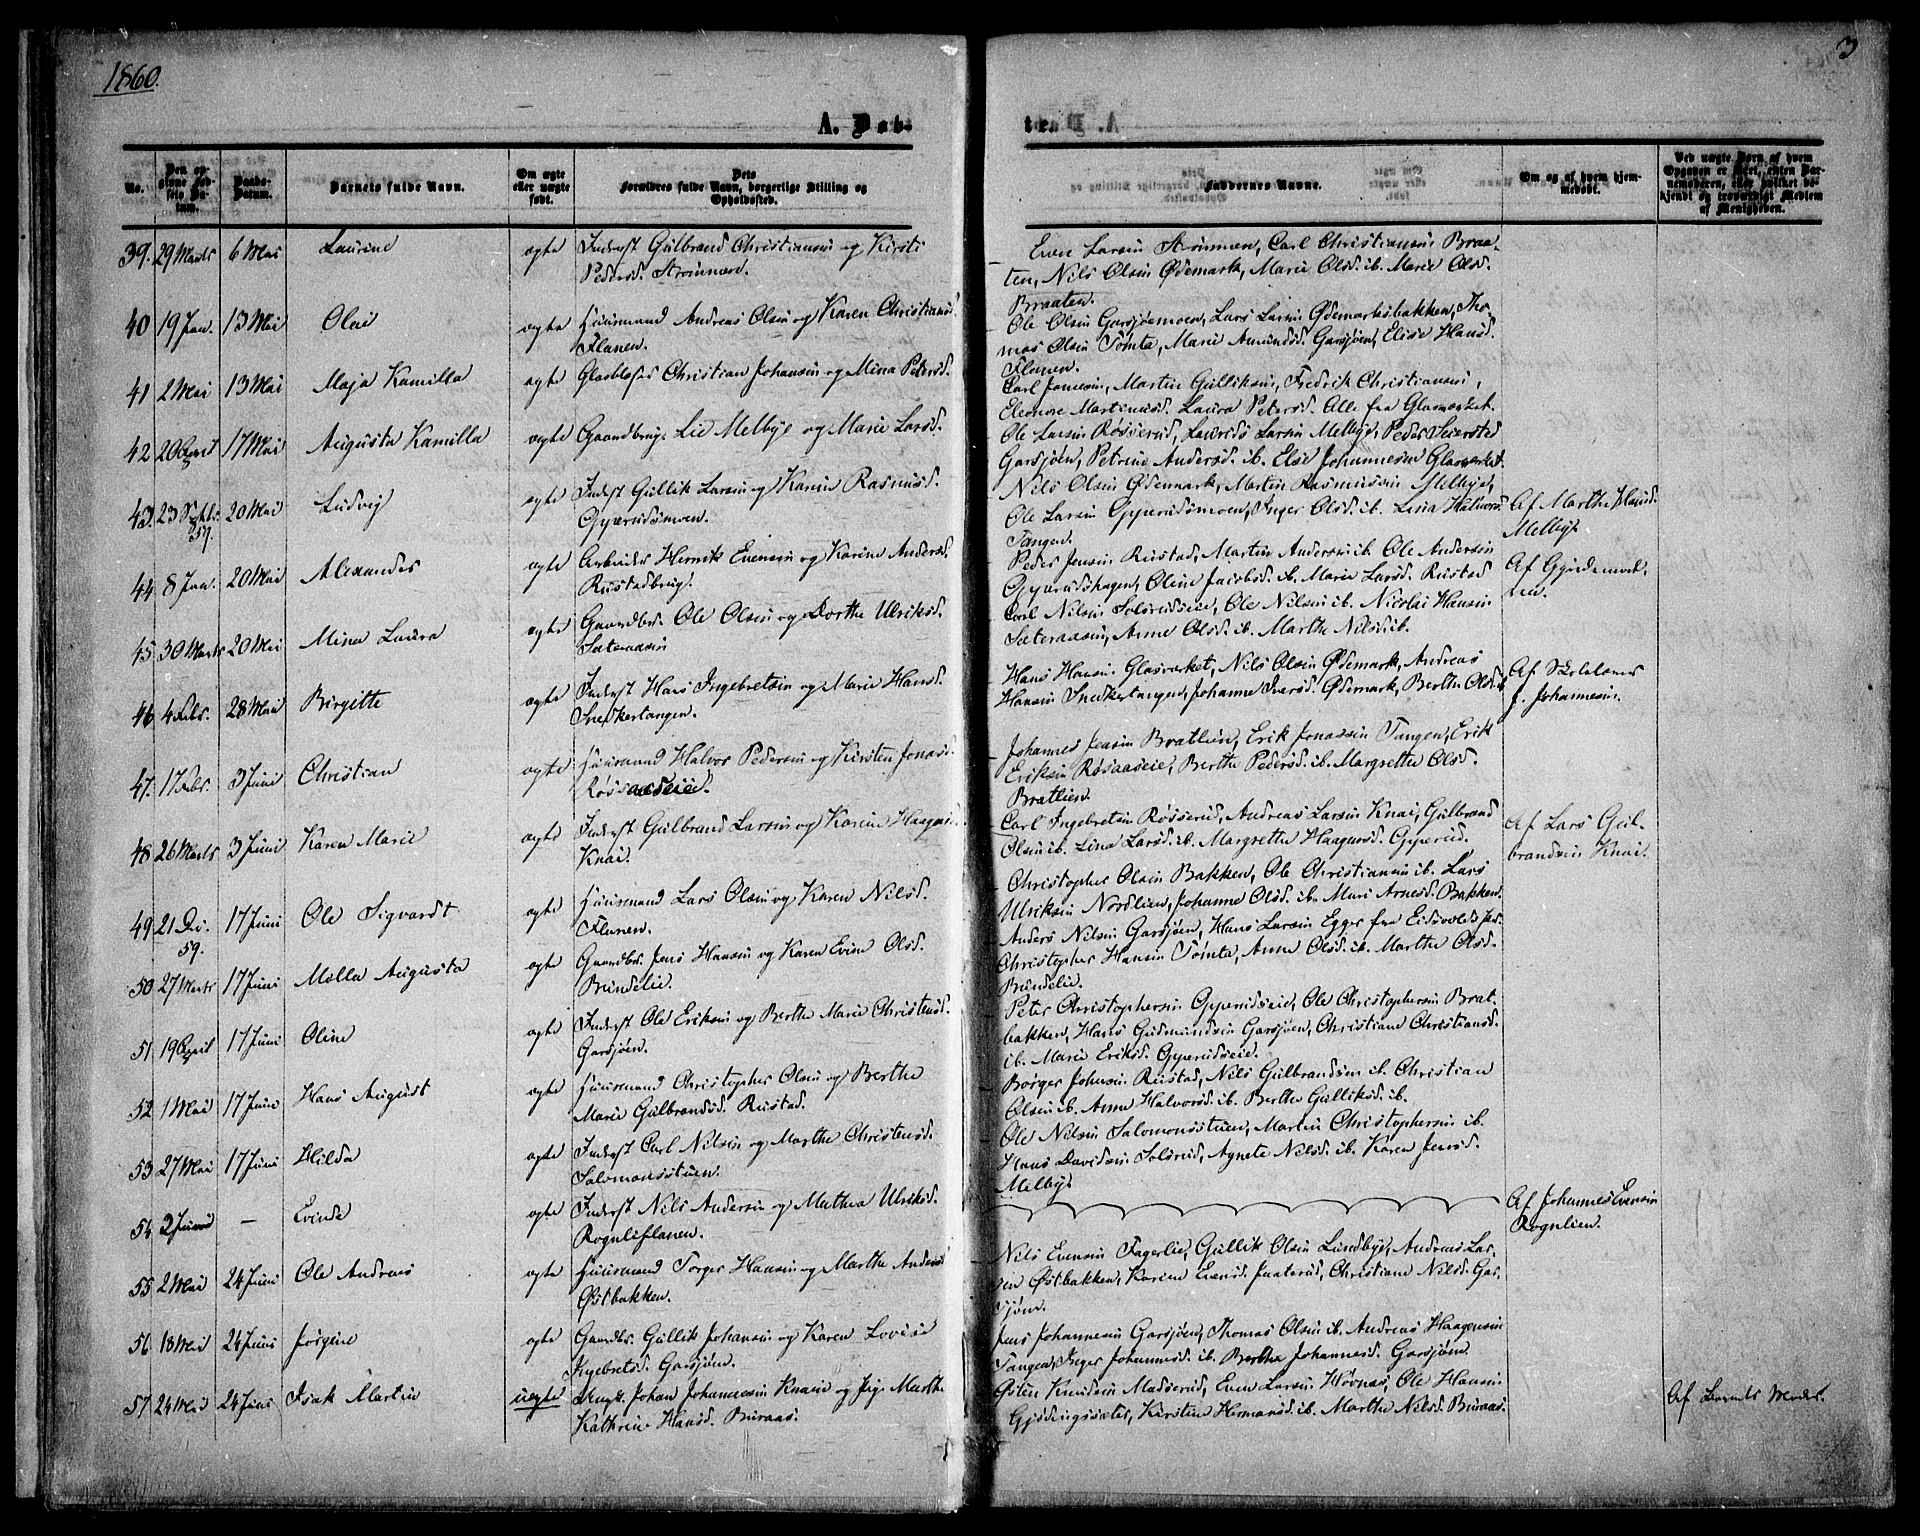 1860.
3
A. Døb-
te.
No.
Den opgivne Fødsels Datum.
Daabs-Datum.
Barnets fulde Navn.
Om ægte eller uægte født.
Dets Forældres fulde Navn, borgerlige Stilling og Opholdssted.
Faddernes Navne.
Om og af hvem hjemmedøbt.
Ved uægte Born, af hvem Opgaven er skeet, enten Barnemoderen, eller hvilket bekjendt og troværdigt Medlem af Menigheden.
39. 29 Marts 6 Mai Laurine ægte Inderst Gulbrand Christiansen og Kirsti
Pedersd. Strømnæs.
Even Larsen Strømnæs, Carl Christiansen Braa-
ten, Nils Olsen Ødemark, Marie Olsd. ib. Marie Olsd.
Braaten.
40 19 Jan. 13 Mai Olai ægte Huusmand Andreas Olsen og Karen Christiansd.
Flanen.
Ole Olsen Garsjømoen, Lars Larsen Ødemarksbakken, Tho-
mas Olsen Tømta, Marie Amundsd. Garsjøen, Elise Hansd.
Flanen.
41 2 Mai 13 Mai Maja Kamilla ægte Glasblæser Christian Johansen og Mina Petersd.
Carl Jansen, Martin Gulliksen, Fredrik Christiansen,
Eleonore Martinusd. Laura Petersd. Alle fra Glasværket.
42 20 April 17 Mai Augusta Kamilla ægte Gaardbrug. Lie Melbye og Marie Larsd.
Ole Larsen Røsserud, Laurids Larsen Melbye, Peder Seiersted
Garsjøen, Petrine Andersd. ib. Else Johannesen Glasværket.
43. 23 Septbr. 59. 20 Mai Ludvig ægte Inderst Gullik Larsen og Karen Rasmusd.
Gyperudsmoen.
Nils Olsen Ødemark, Martin Rasmussen Melbye,
Ole Larsen Gyperudsmoen, Inger Olsd. ib. Lina Halvorsd.
Tangen.
Af Marthe Hansd.
Melbye
44 8 Jan. 20 Mai Alexander ægte Arbeider Henrik Evensen og Karine Andersd.
Rustadbrug.
Peder Jensen Rustad, Martin Andersen ib. Ole Andersen
Gyperudshagen, Oline Jacobsd. ib. Marie Larsd. Rustad
Af Gjordemod-
ren.
45 30 Marts 20 Mai Mina Laura ægte Gaardbr. Ole Olsen og Dorthe Ulriksd.
Sæteraasen
Carl Nilsen Solerudseie, Ole Nilsen ib. Nicolai Hansen
Sæteraasen, Anne Olsd. ib. Marthe Nilsd. ib.
46 4 Febr. 28 Mai Birgitte ægte Inderst Hans Ingebretsen og Marie Hansd.
Snedkertangen.
Hans Hansen Glasværket, Nils Olsen Ødemark, Andreas
Hansen Snedkertangen, Johanne Iversd. Ødemark, Berthe Olsd. ib.
Af Skolelærer
J. Johannesen.
47. 17 Febr. 3 Juni Christian ægte Huusmand Halvor Pedersen og Kirsten Jonasd.
Røsaaseie.
Johannes Jensen Bratlien, Erik Jonassen Tangen, Erik
Eriksen Røsaaseie, Berthe Pedersd. ib. Margrethe Olsd.
Bratlien.
48 26 Marts 3 Juni Karen Marie ægte Inderst Gulbrand Larsen og Karine Haagensd.
Knai.
Carl Ingebretsen Røsserud, Andreas Larsen Knai, Gulbrand
Olsen ib. Lina Larsd. ib. Margrethe Haagensd. Gyperud.
Af Lars Gul-
brandsen Knai.
49 21 De. 59. 17 Juni Ole Sigvardt ægte Huusmand Lars Olsen og Karen Nilsd.
Flanen.
Christopher Olsen Bakken, Ole Christiansen ib. Lars
Ulriksen Nordlien, Johanne Olsd. ib. Mari Arnesd. Bakken.
50 27 Marts 17 Juni Molla Augusta ægte Gaardbr. Jens Hansen og Karen Evine Olsd.
Brundelie.
Anders Nilsen Garsjøen, Hans Larsen Egger fra Eidsvolds Psd.
Christopher Hansen Tømta, Anne Olsd. ib. Marthe Olsd.
Brundelie.
51. 19 April 17 Juni Oline ægte Inderst Ole Eriksen og Berthe Marie Christensd.
Garsjøen.
Peter Christophersen Gyperudseie, Ole Christophersen Brat-
bakken, Hans Gudmundsen Garsjøen, Christiane Christiansd.
ib. Marie Eriksd. Gyperudseie.
52 1 Mai 17 Juni Hans August ægte Huusmand Christopher Olsen og Berthe
Marie Gulbrandsd. Rustad.
Børger Johnsen Rustad, Nils Gulbrandsen ib. Christian
Olsen ib. Anne Halvorsd. ib. Berthe Gulliksd. ib.
53 27 Mai 17 Juni Hilda ægte Inderst Carl Nilsen og Marthe Christensd.
Salomonsstuen.
Ole Nilsen Salomonsstuen, Martin Christophersen ib.
Hans Davidsen Solerud, Agnete Nilsd. ib. Karen Jensd.
Melbye
54 2 Juni — Evinde ægte Inderst Nils Andersen og Mathea Ulriksd.
Rognliflanen.
Af Johannes Evensen
Rognlien.
55 2 Mai 24 Juni Ole Andreas ægte Huusmand Torger Hansen og Marthe Andersd.
Østbakken.
Nils Evensen Fagerlie, Gullik Olsen Lundbye, Andreas Lar-
sen Østbakken, Karine Evensd. Jnaterud, Christiane Nilsd. Gar-
sjøen.
56 18 Mai 24 Juni Jørgine ægte Gaardbr. Gullik Johansen og Karen Lovise
Ingebretsd. Garsjøen.
Jens Johannesen Garsjøen, Thomas Olsen ib. Andreas Haagensen
Tangen, Inger Johannesd. ib. Berthe Johannesd. Garsjøen
57 24 Mai 24 Juni Isak Martin uægte Ungk. Johan Johannesen Knaie og Pige Marthe
Kathrine Hansd. Buraas.
Østen Knudsen Madserud, Even Larsen Høvnes, Ole Hansen
Gjødingssæter, Kirsten Hermansd. ib. Marthe Nilsd. Buraas.
Af Barnets Moder.